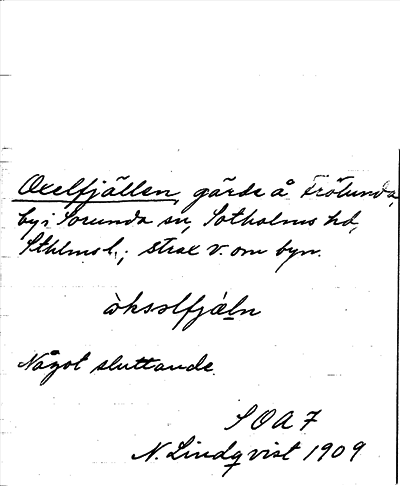 Oxelfjällen, gärde å Frölunda,
by i Sorunda sn, Sotholms hd,
Sthlms l.; strax v. om byn.
òksəlfjæ̀ln
Något sluttande.
SOA 7
N. Lindqvist 1909